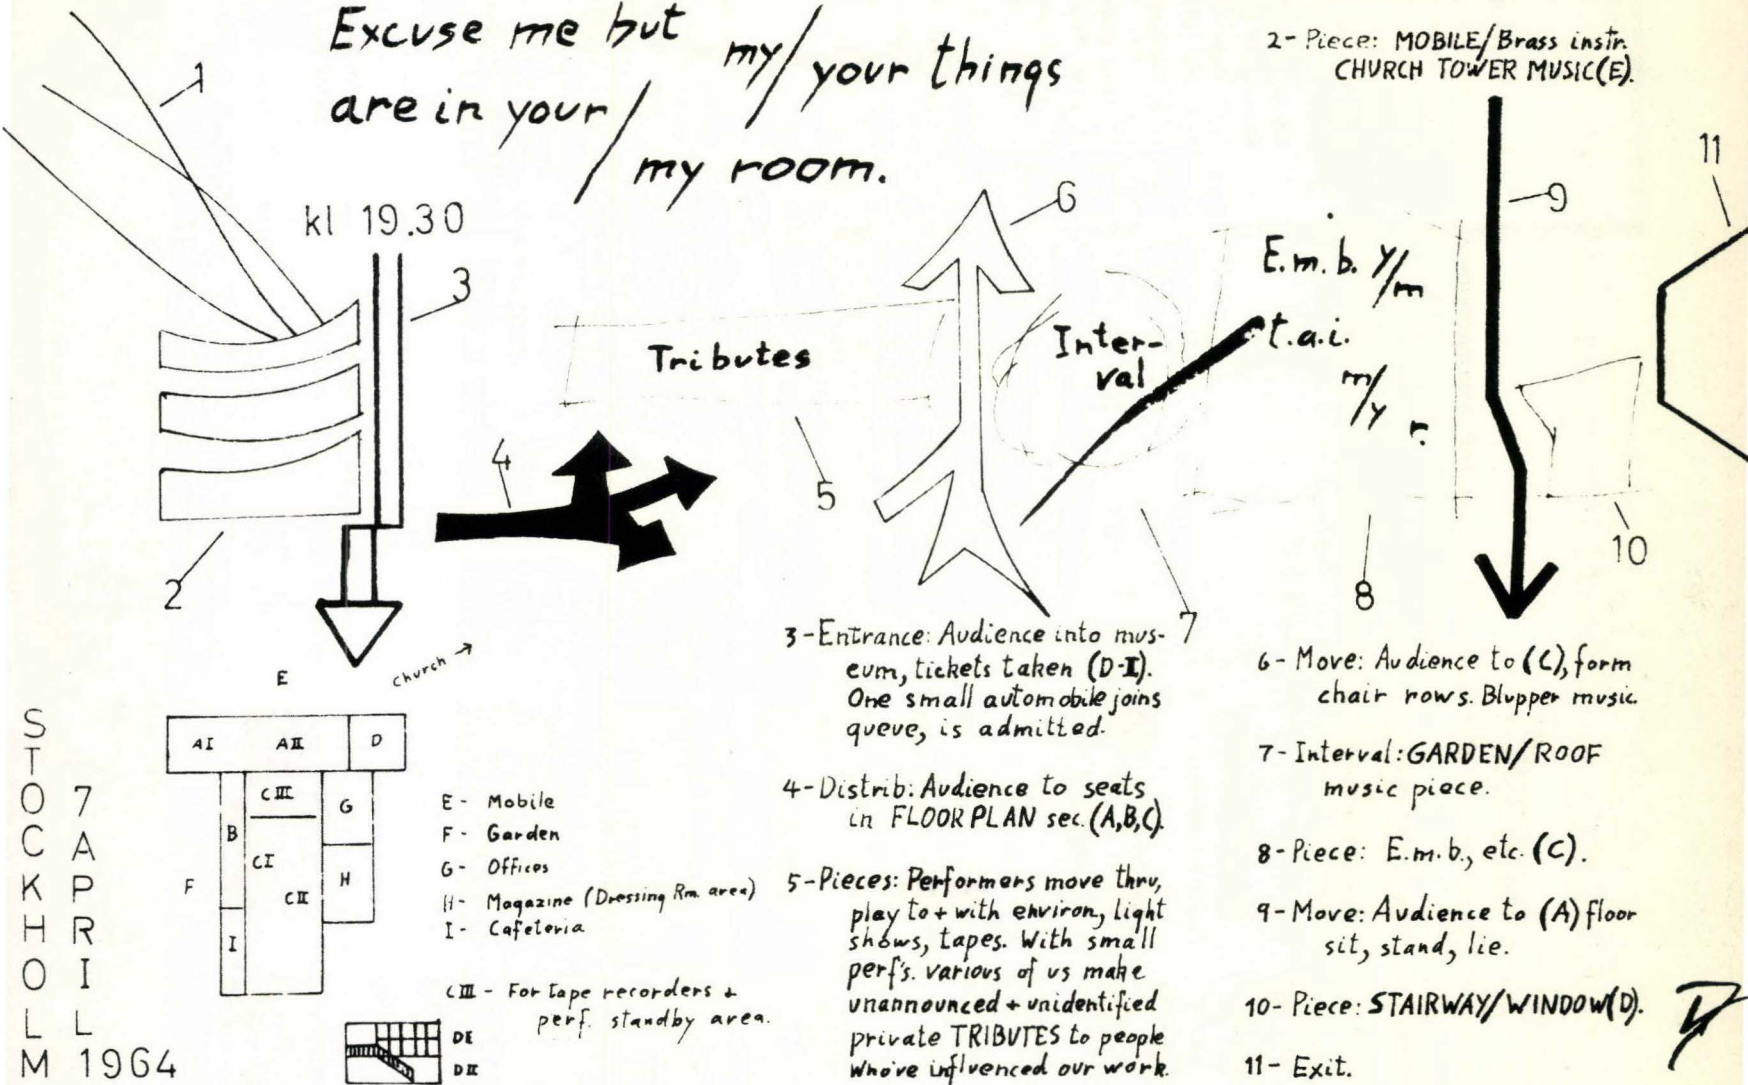 Excuse me but my/your things
are in your/
my room.
2- Piece: MOBILE/Brass instr.
CHURCH TOWER MUSIC(E).
1
2
kl 19.30
3
4
Tributes
5
6
Inter-
val
7
E.m.b. y/m
t.a.i.
m/y r.
8
9
10
11
E
church →
AI
AII
D
CIII
G
B
CI
H
F
CII
I
E- Mobile
F- Garden
G- Offices
H- Magazine (Dressing Rm. area)
I- Cafeteria
CIII- For tape recorders +
perf. standby area.
DE
DII
STOCKHOLM
7 APRIL
1964
3-Entrance: Audience into mus-
eum, tickets taken (D-I).
One small automobile joins
queue, is admitted.
4-Distrib: Audience to seats
in FLOOR PLAN sec. (A,B,C).
5-Pieces: Performers move thru,
play to + with environ, light
shows, tapes. With small
perf's. various of us make
unannounced + unidentified
private TRIBUTES to people
who've influenced our work.
6- Move: Audience to (C), form
chair rows. Blupper music.
7- Interval: GARDEN/ROOF
music piece.
8-Piece: E.m.b., etc. (C).
9-Move: Audience to (A) floor
sit, stand, lie.
10-Piece: STAIRWAY/WINDOW(D).
11- Exit.